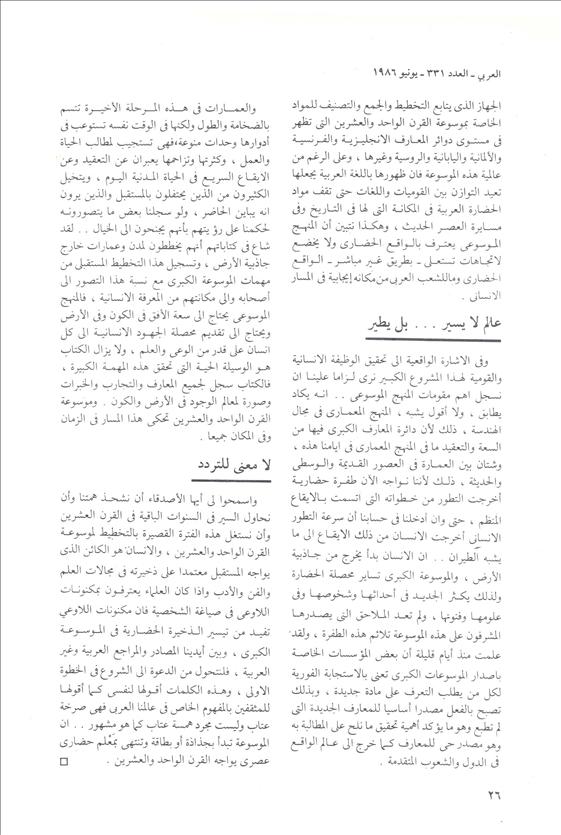 العربي - العدد ٣٣١ - يونيو ١٩٨٦
الجهاز الذى يتابع التخطيط والجمع والتصنيف للمواد
الخاصة بموسوعة القرن الواحد والعشرين التى تظهر
فى مستوى دوائر المعارف الانجليزية والفرنسية
والألمانية واليابانية والروسية وغيرها ، وعلى الرغم من
عالمية هذه الموسوعة فان ظهورها باللغة العربية يجعلها
تعيد التوازن بين القوميات واللغات حتى تقف مواد
الحضارة العربية فى المكانة التى لها فى التاريخ وفى
مسايرة العصر الحديث ، وهكذا نتبين أن المنهج
الموسوعى يعترف بالواقع الحضارى ولا يخضع
لاتجاهات تستعلى - بطريق غير مباشر - الواقع
الحضارى وماللشعب العربى من مكانه إيجابية فى المسار
الانسانى .
عالم لا يسير . . . بل يطير
وفى الاشارة الواقعية الى تحقيق الوظيفة الانسانية
والقومية لهذا المشروع الكبير نرى لزاما علينا ان
نسجل اهم مقومات المنهج الموسوعى . . انه يكاد
يطابق ، ولا أقول يشبه ، المنهج المعمارى فى مجال
الهندسة ، ذلك لأن دائرة المعارف الكبرى فيها من
السعة والتعقيد ما فى المنهج المعمارى فى ايامنا هذه ،
وشتان بين العمارة فى العصور القديمة والوسطى
والحديثة ، ذلك لأننا نواجه الآن طفرة حضارية
أخرجت التطور من خطواته التى اتسمت بالايقاع
المنظم ، حتى وان أدخلنا فى حسابنا أن سرعة التطور
الانسانى أخرجت الانسان من ذلك الايقاع الى ما
يشبه الطيران . . ان الانسان بدأ يخرج من جاذبية
الأرض ، والموسوعة الكبرى تساير محصلة الحضارة
ولذلك يكثر الجديد فى أحداثها وشخوصها وفى
علومها وفنونها ، ولم تعد الملاحق التى يصدرها
المشرفون على هذه الموسوعة تلائم هذه الطفرة ، ولقد
علمت منذ أيام قليلة أن بعض المؤسسات الخاصة
باصدار الموسوعات الكبرى تعنى بالاستجابة الفورية
لكل من يطلب التعرف على مادة جديدة ، وبذلك
تصبح بالفعل مصدرا أساسيا للمعارف الجديدة التى
لم تطبع وهو ما يؤكد أهمية تحقيق ما نلح على المطالبة به
وهو مصدر حى للمعارف كما خرج الى عالم الواقع
فى الدول والشعوب المتقدمة .
والعمارات فى هذه المرحلة الأخيرة تتسم
بالضخامة والطول ولكنها فى الوقت نفسه تستوعب فى
أدوارها وحدات منوعة،فهى تستجيب لمطالب الحياة
والعمل ، وكثرتها وتزاحمها يعبران عن التعقيد وعن
الايقاع السريع فى الحياة المدنية اليوم ، ويتخيل
الكثيرون من الذين يحتفلون بالمستقبل والذين يرون
انه يباين الحاضر ، ولو سجلنا بعض ما يتصورونه
لحكمنا على رؤيتهم بأنهم يجنحون الى الخيال . . لقد
شاع فى كتاباتهم أنهم يخططون لمدن وعمارات خارج
جاذبية الأرض ، وتسجيل هذا التخطيط المستقبلى من
مهمات الموسوعة الكبرى مع نسبة هذا التصور الى
أصحابه والى مكانتهم من المعرفة الانسانية ، فالمنهج
الموسوعى يحتاج الى سعة الأفق فى الكون وفى الأرض
ويحتاج الى تقديم محصلة الجهود الانسانية الى كل
انسان على قدر من الوعى والعلم ، ولا يزال الكتاب
هو الوسيلة الحية التى تحقق هذه المهمة الكبيرة ،
فالكتاب سجل لجميع المعارف والتجارب والخبرات
وصورة لمعالم الوجود فى الأرض والكون . وموسوعة
القرن الواحد والعشرين تحكى هذا المسار فى الزمان
وفى المكان جميعا .
لا معنى للتردد
واسمحوا لى أيها الأصدقاء أن نشحذ همتنا وأن
نحاول السير فى السنوات الباقية فى القرن العشرين
وأن نستغل هذه الفترة القصيرة بالتخطيط لموسوعة
القرن الواحد والعشرين ، والانسان هو الكائن الذى
يواجه المستقبل معتمدا على ذخيرته فى مجالات العلم
والفن والأدب واذا كان العلماء يعترفون بمكنونات
اللاوعى فى صياغة الشخصية فان مكنونات اللاوعي
تفيد من تيسير الذخيرة الحضارية فى الموسوعة
الكبرى ، وبين أيدينا المصادر والمراجع العربية وغير
العربية ، فلنتحول من الدعوة الى الشروع فى الخطوة
الاولى ، وهذه الكلمات أقولها لنفسى كما أقولها
للمثقفين بالمفهوم الخاص فى عالمنا العربى فهى صرخة
عتاب وليست مجرد همسة عتاب كما هو مشهور . . ان
الموسوعة تبدأ بجذاذة أو بطاقة وتنتهى بمَعْلم حضارى
عصرى يواجه القرن الواحد والعشرين . □
٢٦